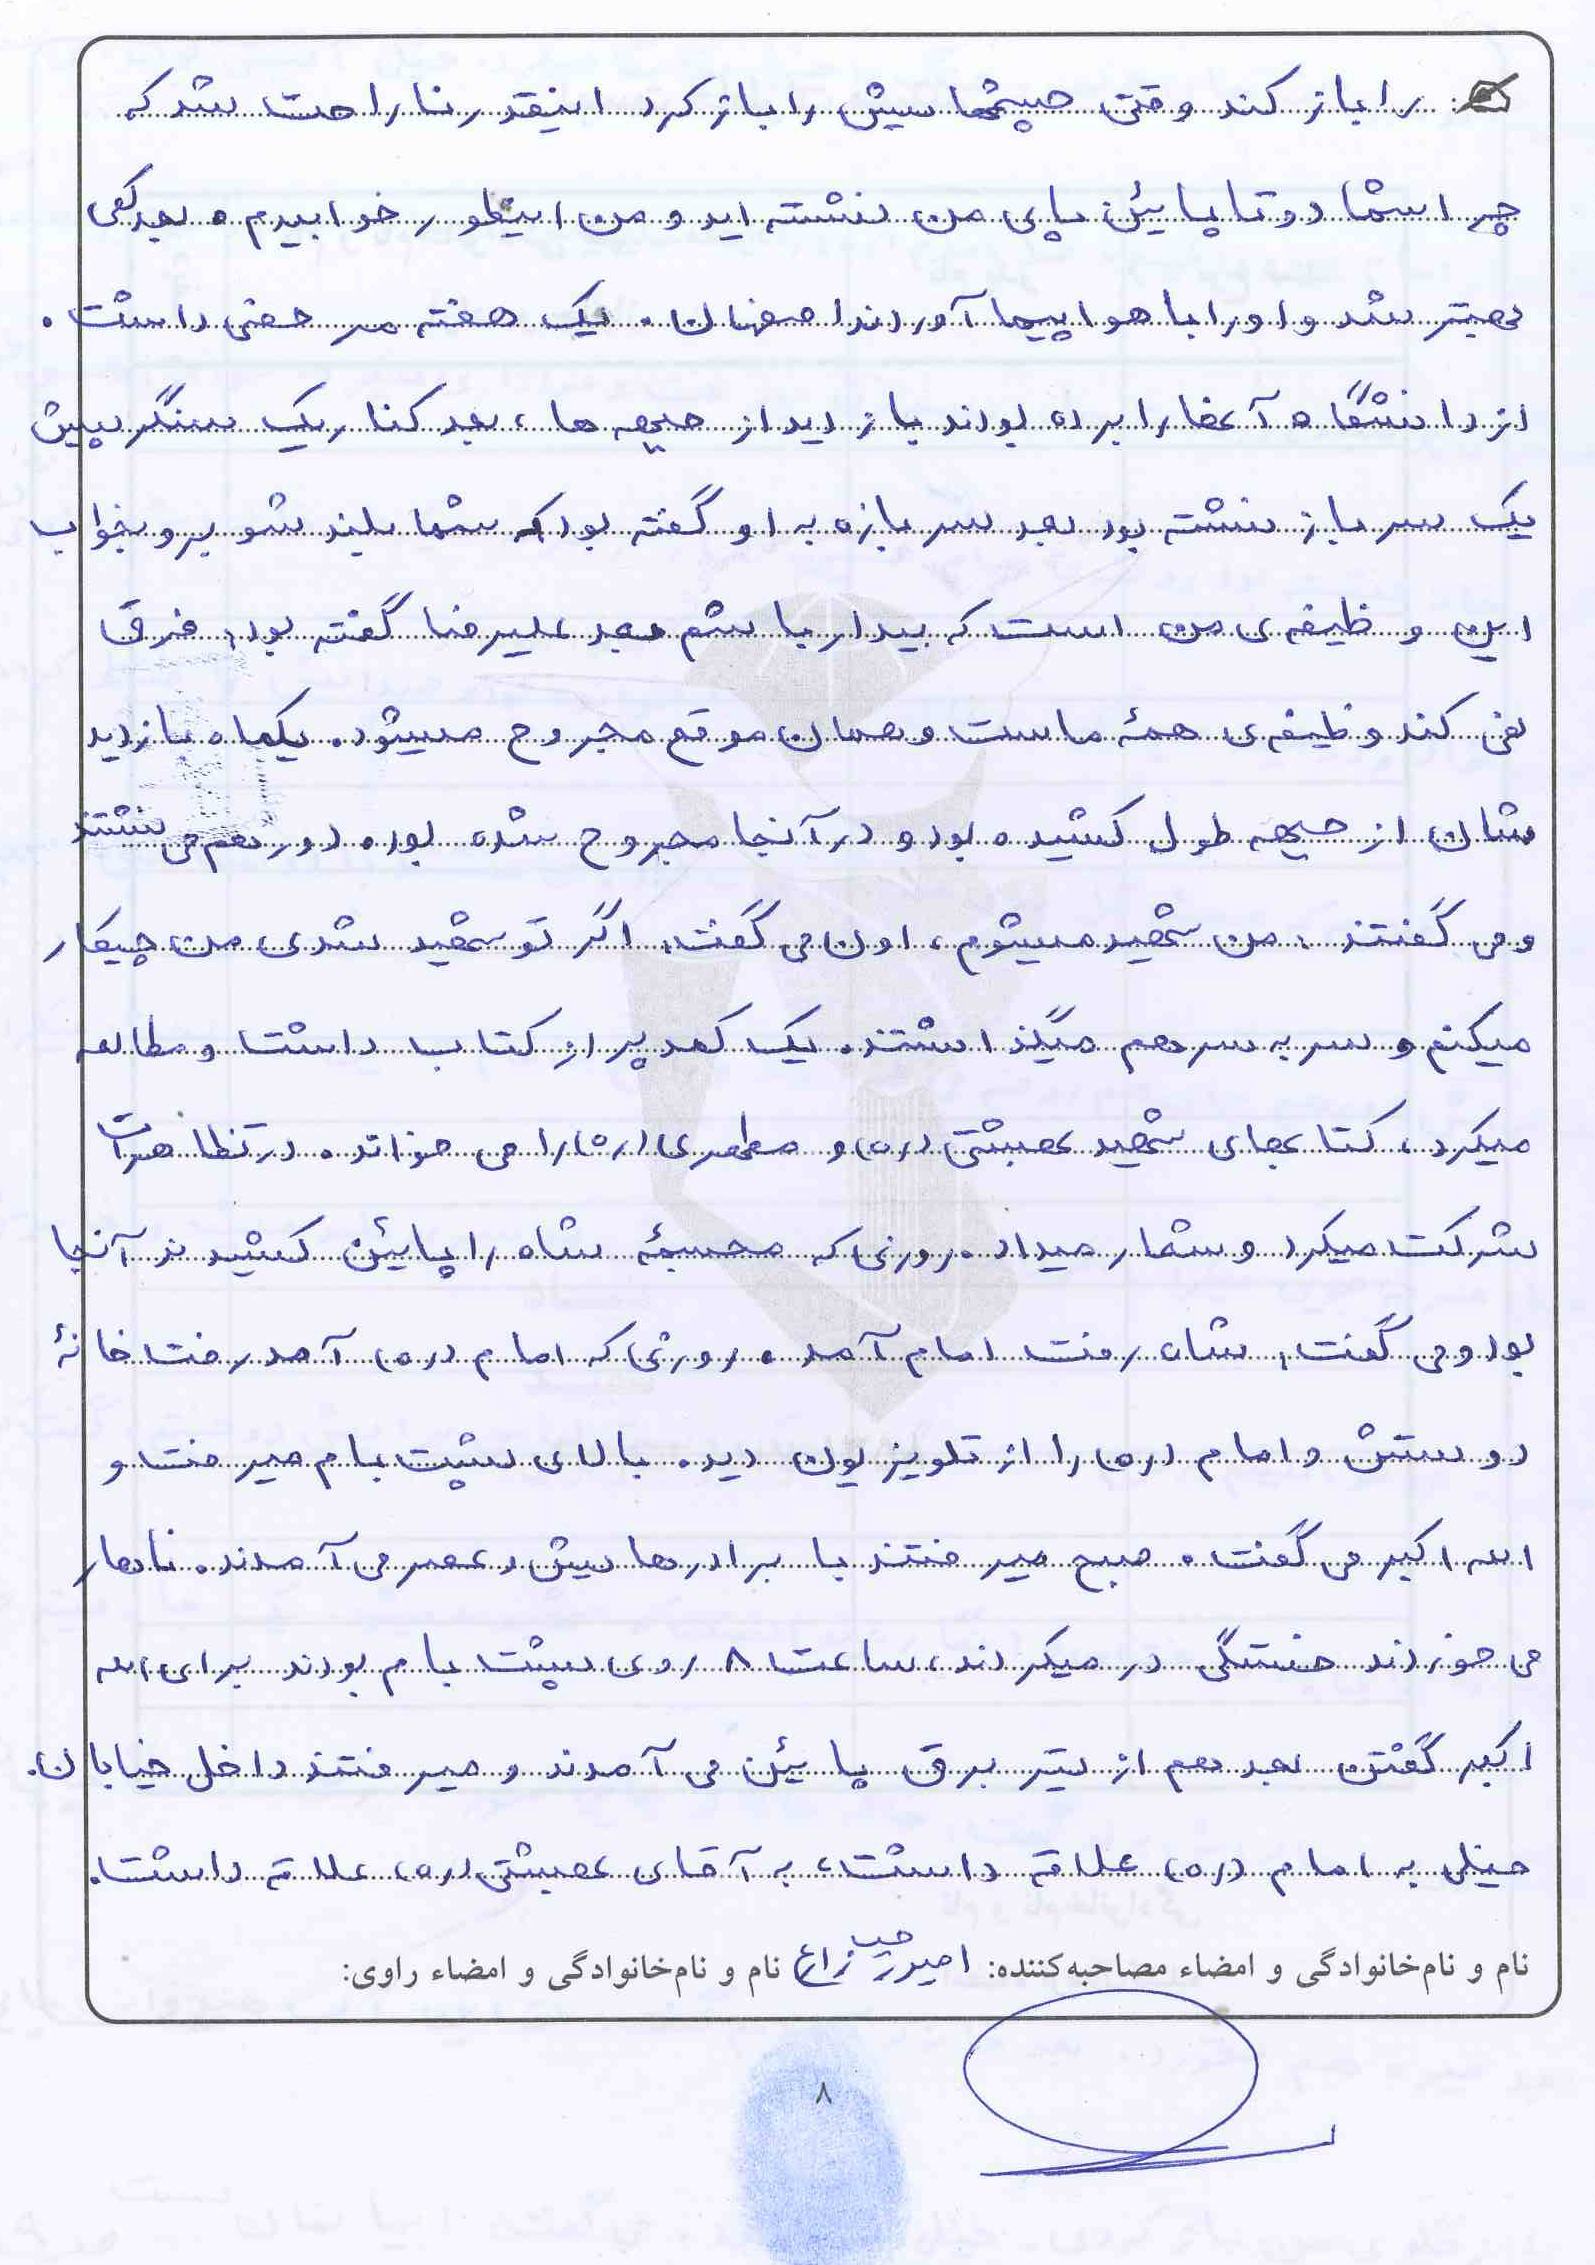 را باز کند وقتی چشمهایش را باز کرد اینقدر ناراحت شد که
چرا شما دو تا پایین پای من نشسته اید و من اینطور خوابیدم. بعد کمی
بهتر شد و او را با هواپیما آوردند اصفهان. یک هفته مرخصی داشت.
از دانشگاه آنها را برده بودند بازدید از جبهه ها، بعد کنار یک سنگر پیش
یک سرباز نشسته بود بعد سربازه به او گفته بود که شما بلند شو برو بخواب
این وظیفه ی من است که بیدار باشم بعد علیرضا گفته بود: فرق
نمی کند وظیفه ی همهٔ ماست و همان موقع مجروح میشود. یکماه بازدید
شان از جبهه طول کشیده بود و در آنجا مجروح شده بود. دور هم می نشستند
و می گفتند: من شهید میشوم، اون می گفت: اگر تو شهید شدی من چیکار
میکنم و سر به سر هم میگذاشتند. یک کمد پر از کتاب داشت و مطالعه
میکرد، کتابهای شهید بهشتی (ره) و مطهری (ره) را می خواند. در تظاهرات
شرکت میکرد و شعار میداد. روزی که مجسمهٔ شاه را پایین کشیدند آنجا
بود و می گفت: شاه رفت امام آمد. روزی که امام (ره) آمد رفت خانهٔ
دوستش و امام (ره) را از تلویزیون دید. بالای پشت بام میرفت و
الله اکبر می گفت. صبح میرفتند با برادرهایش و عصر می آمدند. ناهار
می خوردند خستگی در میکردند، ساعت ۸ روی پشت بام بودند برای الله
اکبر گفتن بعد هم از تیر برق پایین می آمدند و میرفتند داخل خیابان.
خیلی به امام (ره) علاقه داشت، به آقای بهشتی (ره) علاقه داشت.
نام و نام‌خانوادگی و امضاء مصاحبه‌کننده: زارع نام و نام‌خانوادگی و امضاء راوی:
۸